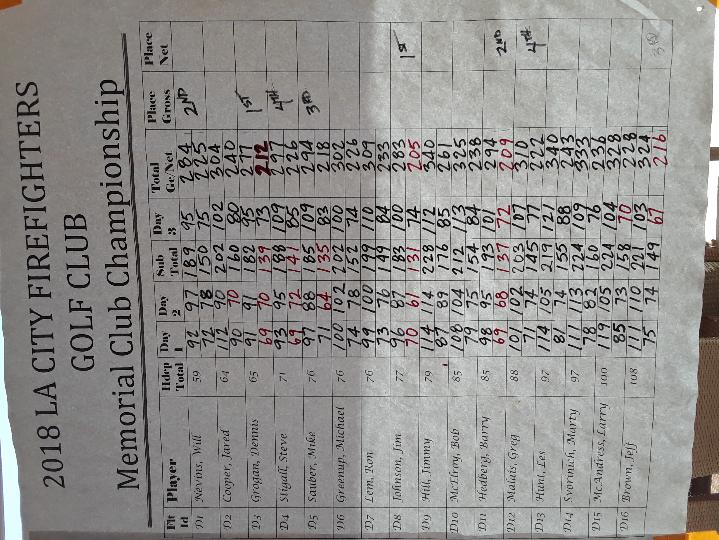 2018 LA CITY FIREFIGHTERS
GOLF CLUB
Memorial Club Championship
Flt Id Player Hdcp Total Day 1 Day 2 Sub Total Day 3 Total Gr/Net Place Gross Place Net
D1 Nevins, Will 59 92 97 189 95 284 2ND
72 78 150 75 225
D2 Cooper, Jared 64 112 90 202 102 304
90 70 160 80 240
D3 Grogan, Dennis 65 91 91 182 95 277 1ST
69 70 139 73 212
D4 Stigall, Steve 71 93 95 188 109 297 4TH
69 72 141 85 226
D5 Sauber, Mike 76 97 88 185 109 294 3RD
71 64 135 83 218
D6 Greenup, Michael 76 100 102 202 100 302
74 78 152 74 226
D7 Lem, Ron 76 99 100 199 110 309
73 76 149 84 233
D8 Johnson, Jim 77 96 87 183 100 283
70 61 131 74 205 1ST
D9 Hill, Jimmy 79 114 114 228 112 340
87 89 176 85 261
D10 McElroy, Bob 85 108 104 212 113 325
79 75 154 84 238
D11 Hedberg, Barry 85 98 95 193 101 294
69 68 137 72 209 2ND
D12 Malais, Greg 88 101 102 203 107 310
71 74 145 77 222 4TH
D13 Hunt, Les 97 114 105 219 121 340
81 74 155 88 243
D14 Svorinich, Marty 97 111 113 224 109 333
78 82 160 76 236
D15 McAndress, Larry 100 119 105 224 104 328
85 73 158 70 228
D16 Brown, Jeff 108 111 110 221 103 324
75 74 149 67 216 3RD